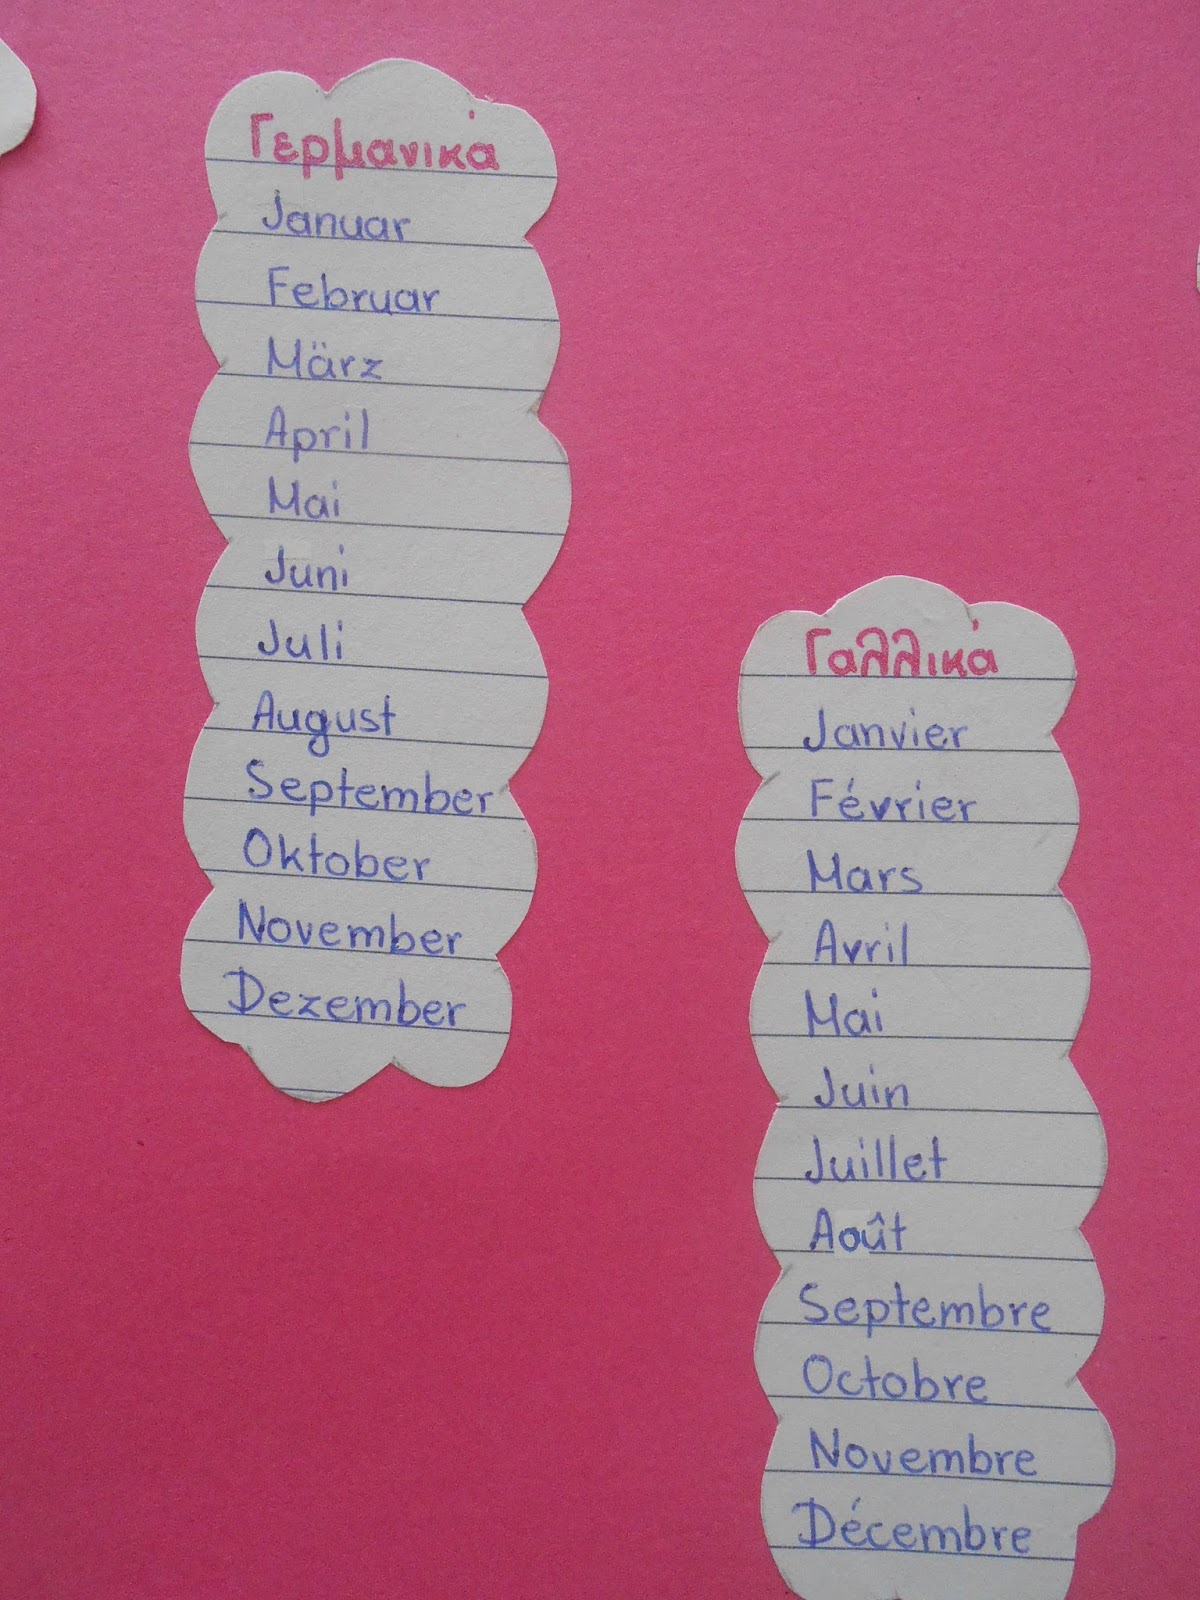 Γερμανικά
Januar
Februar
März
April
Mai
Juni
Juli
August
September
Oktober
November
Dezember
Γαλλικά
Janvier
Février
Mars
Avril
Mai
Juin
Juillet
Août
Septembre
Octobre
Novembre
Décembre